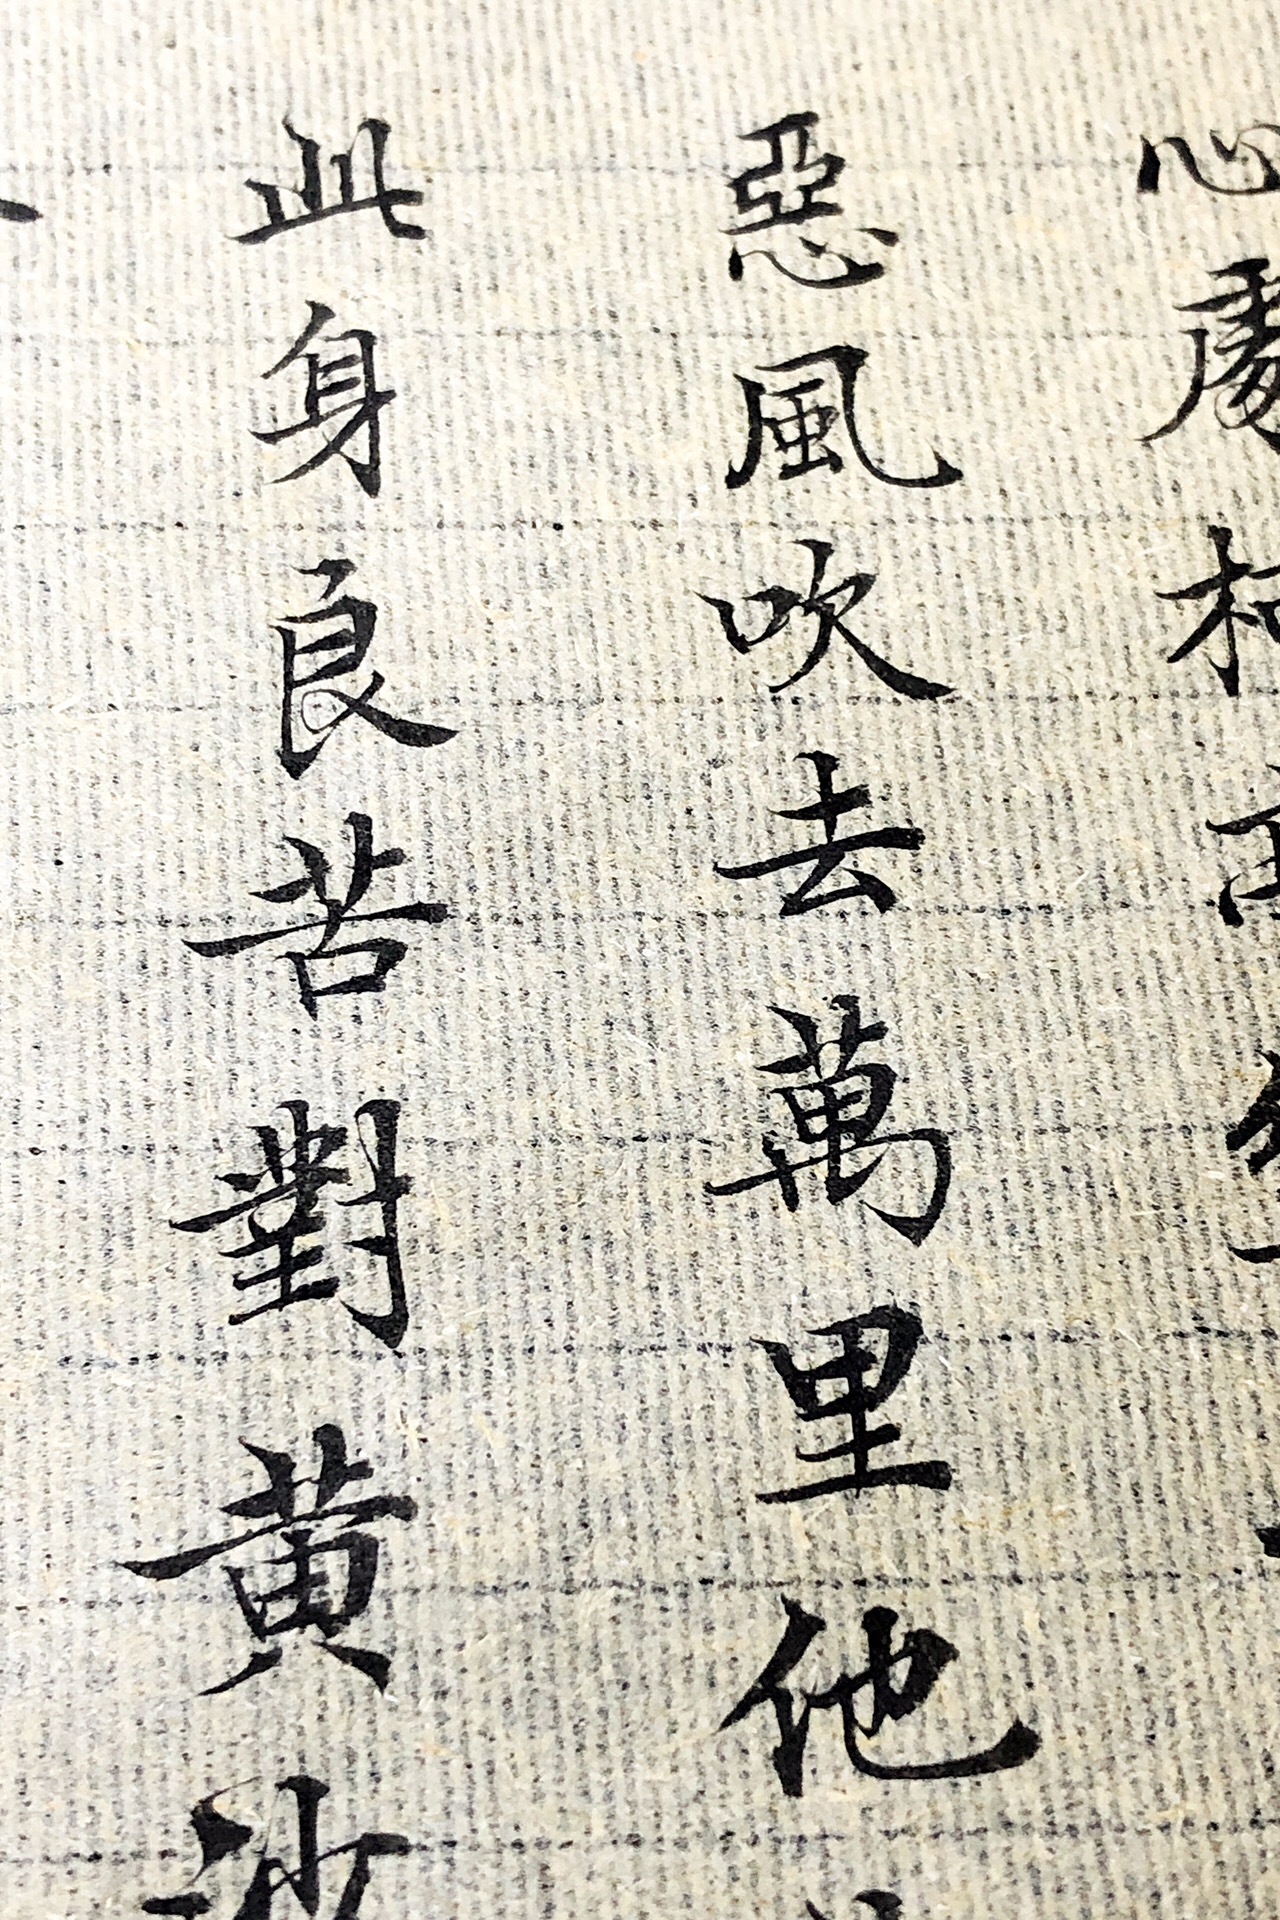 心
惡風吹去萬里他
此身良苦對黃沙